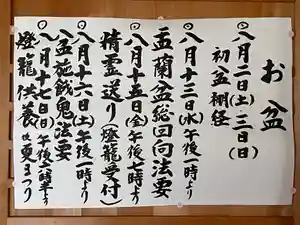 お盆
八月二日(土)三日(日)
初盆棚経
八月十三日(水)午後一時より
盂蘭盆総回向法要
八月十五日(金)午後六時より
精霊送り(燈籠受付)
八月十六日(土)午後一時より
八盆施餓鬼法要
八月十七日(日)午後六時半より
燈籠供養